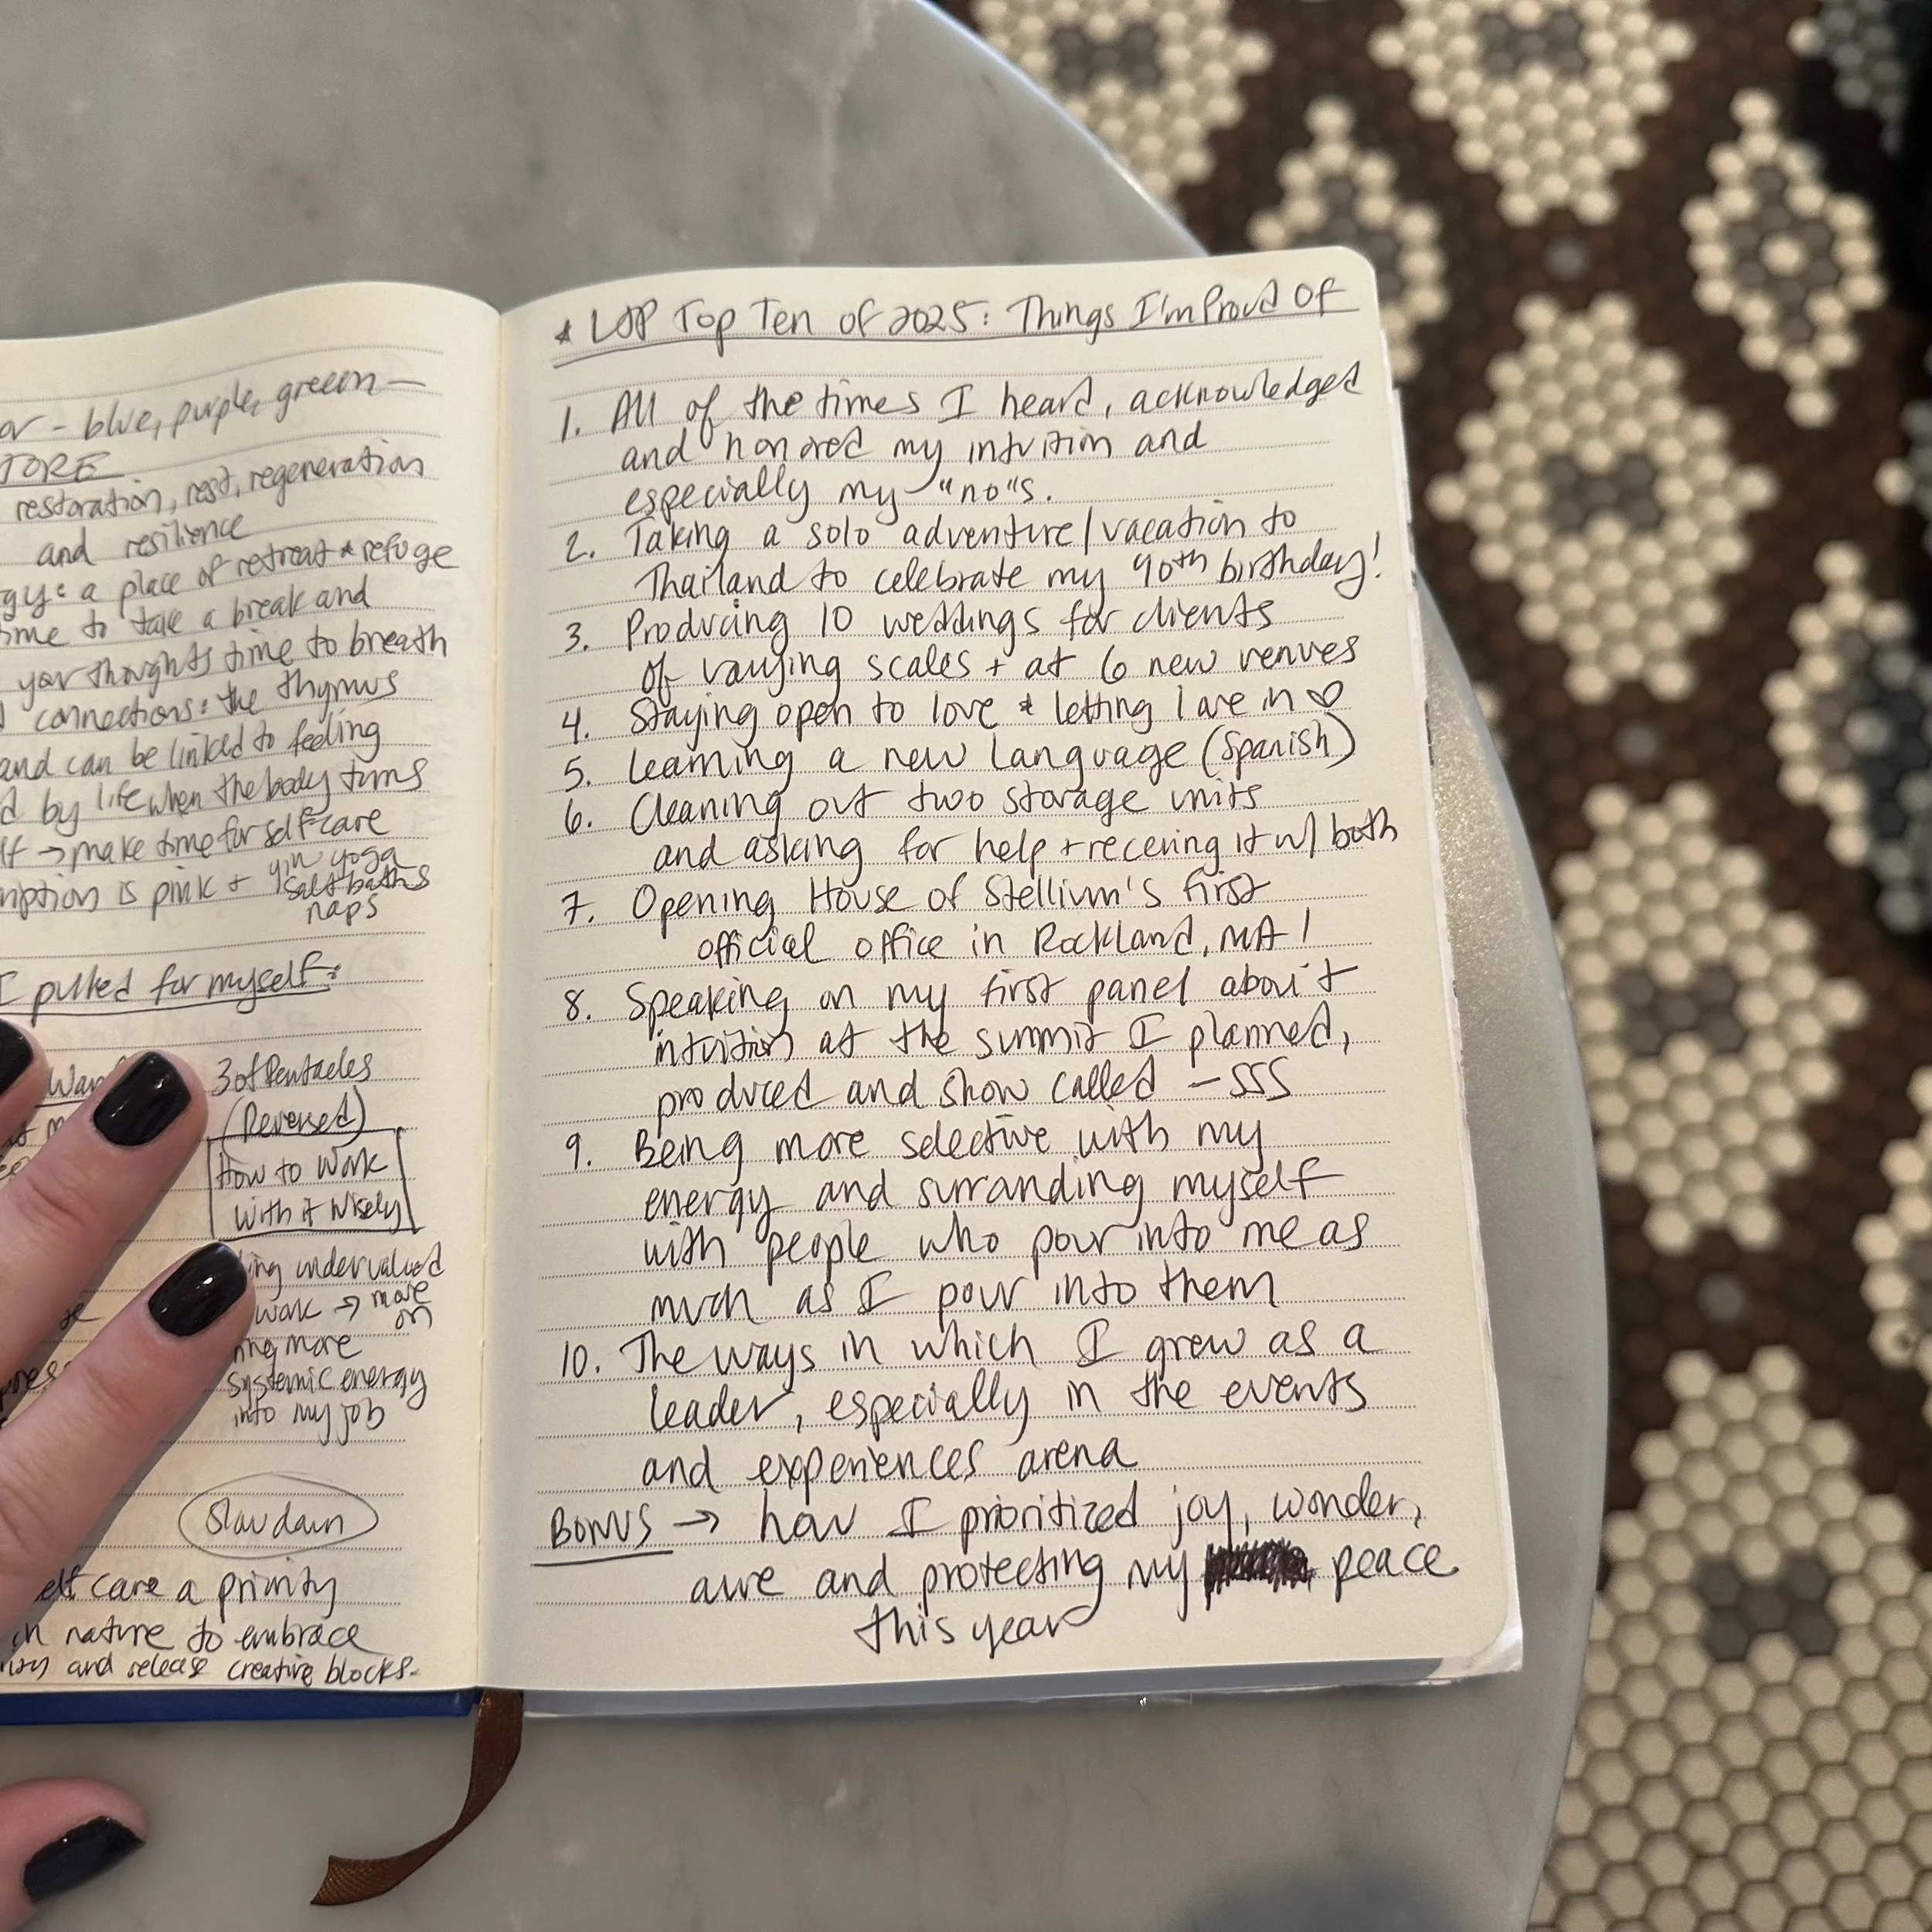 or - blue, purple, greeen —
TORE
restoration, rest, regeneration
and resilience
gy: a place of retreat & refuge
ime to take a break and
your thoughts time to breath
connections: the thymus
and can be linked to feeling
d by life when the body turns
lf → make time for self-care
mption is pink + yin yoga
salt baths
naps
I pulled for myself:
Wan
3 of Pentacles
(Reversed)
How to work
with it wisely
ing undervalued
work → more
on
ing more
systemic energy
into my job
Slow down
elf care a priority
in nature to embrace
and release creative blocks-
* LJP Top Ten of 2025: Things I'm Proud Of
1. All of the times I heard, acknowledged
and honored my intuition and
especially my "no"s.
2. Taking a solo adventure/vacation to
Thailand to celebrate my 40th birthday!
3. Producing 10 weddings for clients
of varying scales + at 6 new venues
4. Staying open to love & letting love in ♡
5. Learning a new language (Spanish)
6. Cleaning out two storage units
and asking for help + receving it w/ both
7. Opening House of Stellium's first
official office in Rockland, MA!
8. Speaking on my first panel about
intuition at the summit I planned,
produced and show called - SSS
9. Being more selective with my
energy and surranding myself
with people who pour into me as
much as I pour into them
10. The ways in which I grew as a
leader, especially in the events
and experiences arena
BONUS → how I prioritized joy, wonder,
awe and protecting my peace
this year